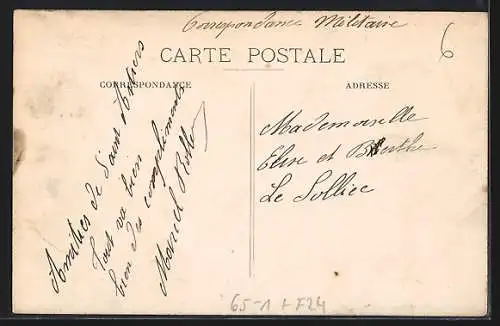 Correspondance Militaire
6
CARTE POSTALE
CORRESPONDANCE
ADRESSE
Amitiés de Saint
Tout va bien
bien des compliments
Marcel
Mademoiselle
Elise et Berthe
Le Sollier
65-1